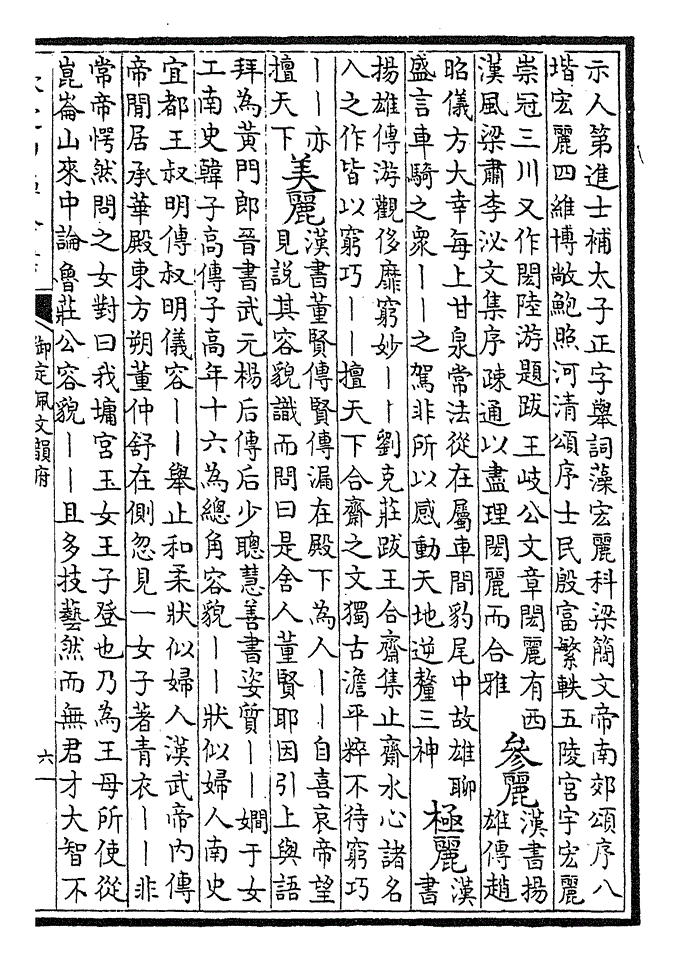 示人第進士補太子正字舉詞藻宏麗科梁簡文帝南郊頌序八
堦宏麗四維博敞鮑照河清頌序士民殷富繁軼五陵宮宇宏麗
崇冠三川又作閎陸游題跋王岐公文章閎麗有西
漢風梁肅李泌文集序疎通以盡理閎麗而合雅
參麗
漢書揚
雄傳趙
昭儀方大幸每上甘泉常法從在屬車間豹尾中故雄聊
盛言車騎之衆丨丨之駕非所以感動天地逆釐三神
極麗
漢
書
揚雄傳游觀侈靡窮妙丨丨劉克莊跋王合齋集止齋水心諸名
人之作皆以窮巧丨丨擅天下合齋之文獨古澹平粹不待窮巧
丨丨亦
擅天下
美麗
漢書董賢傳賢傳漏在殿下為人丨丨自喜哀帝望
見說其容貌識而問曰是舍人董賢耶因引上與語
拜為黃門郎晉書武元楊后傳后少聰慧善書姿質丨丨嫺于女
工南史韓子高傳子高年十六為總角容貌丨丨狀似婦人南史
宜都王叔明傳叔明儀容丨丨舉止和柔狀似婦人漢武帝內傳
帝閒居承華殿東方朔董仲舒在側忽見一女子著青衣丨丨非
常帝愕然問之女對曰我墉宮玉女王子登也乃為王母所使從
崑崙山來中論魯莊公容貌丨丨且多技藝然而無君才大智不
御定佩文韻府
六一